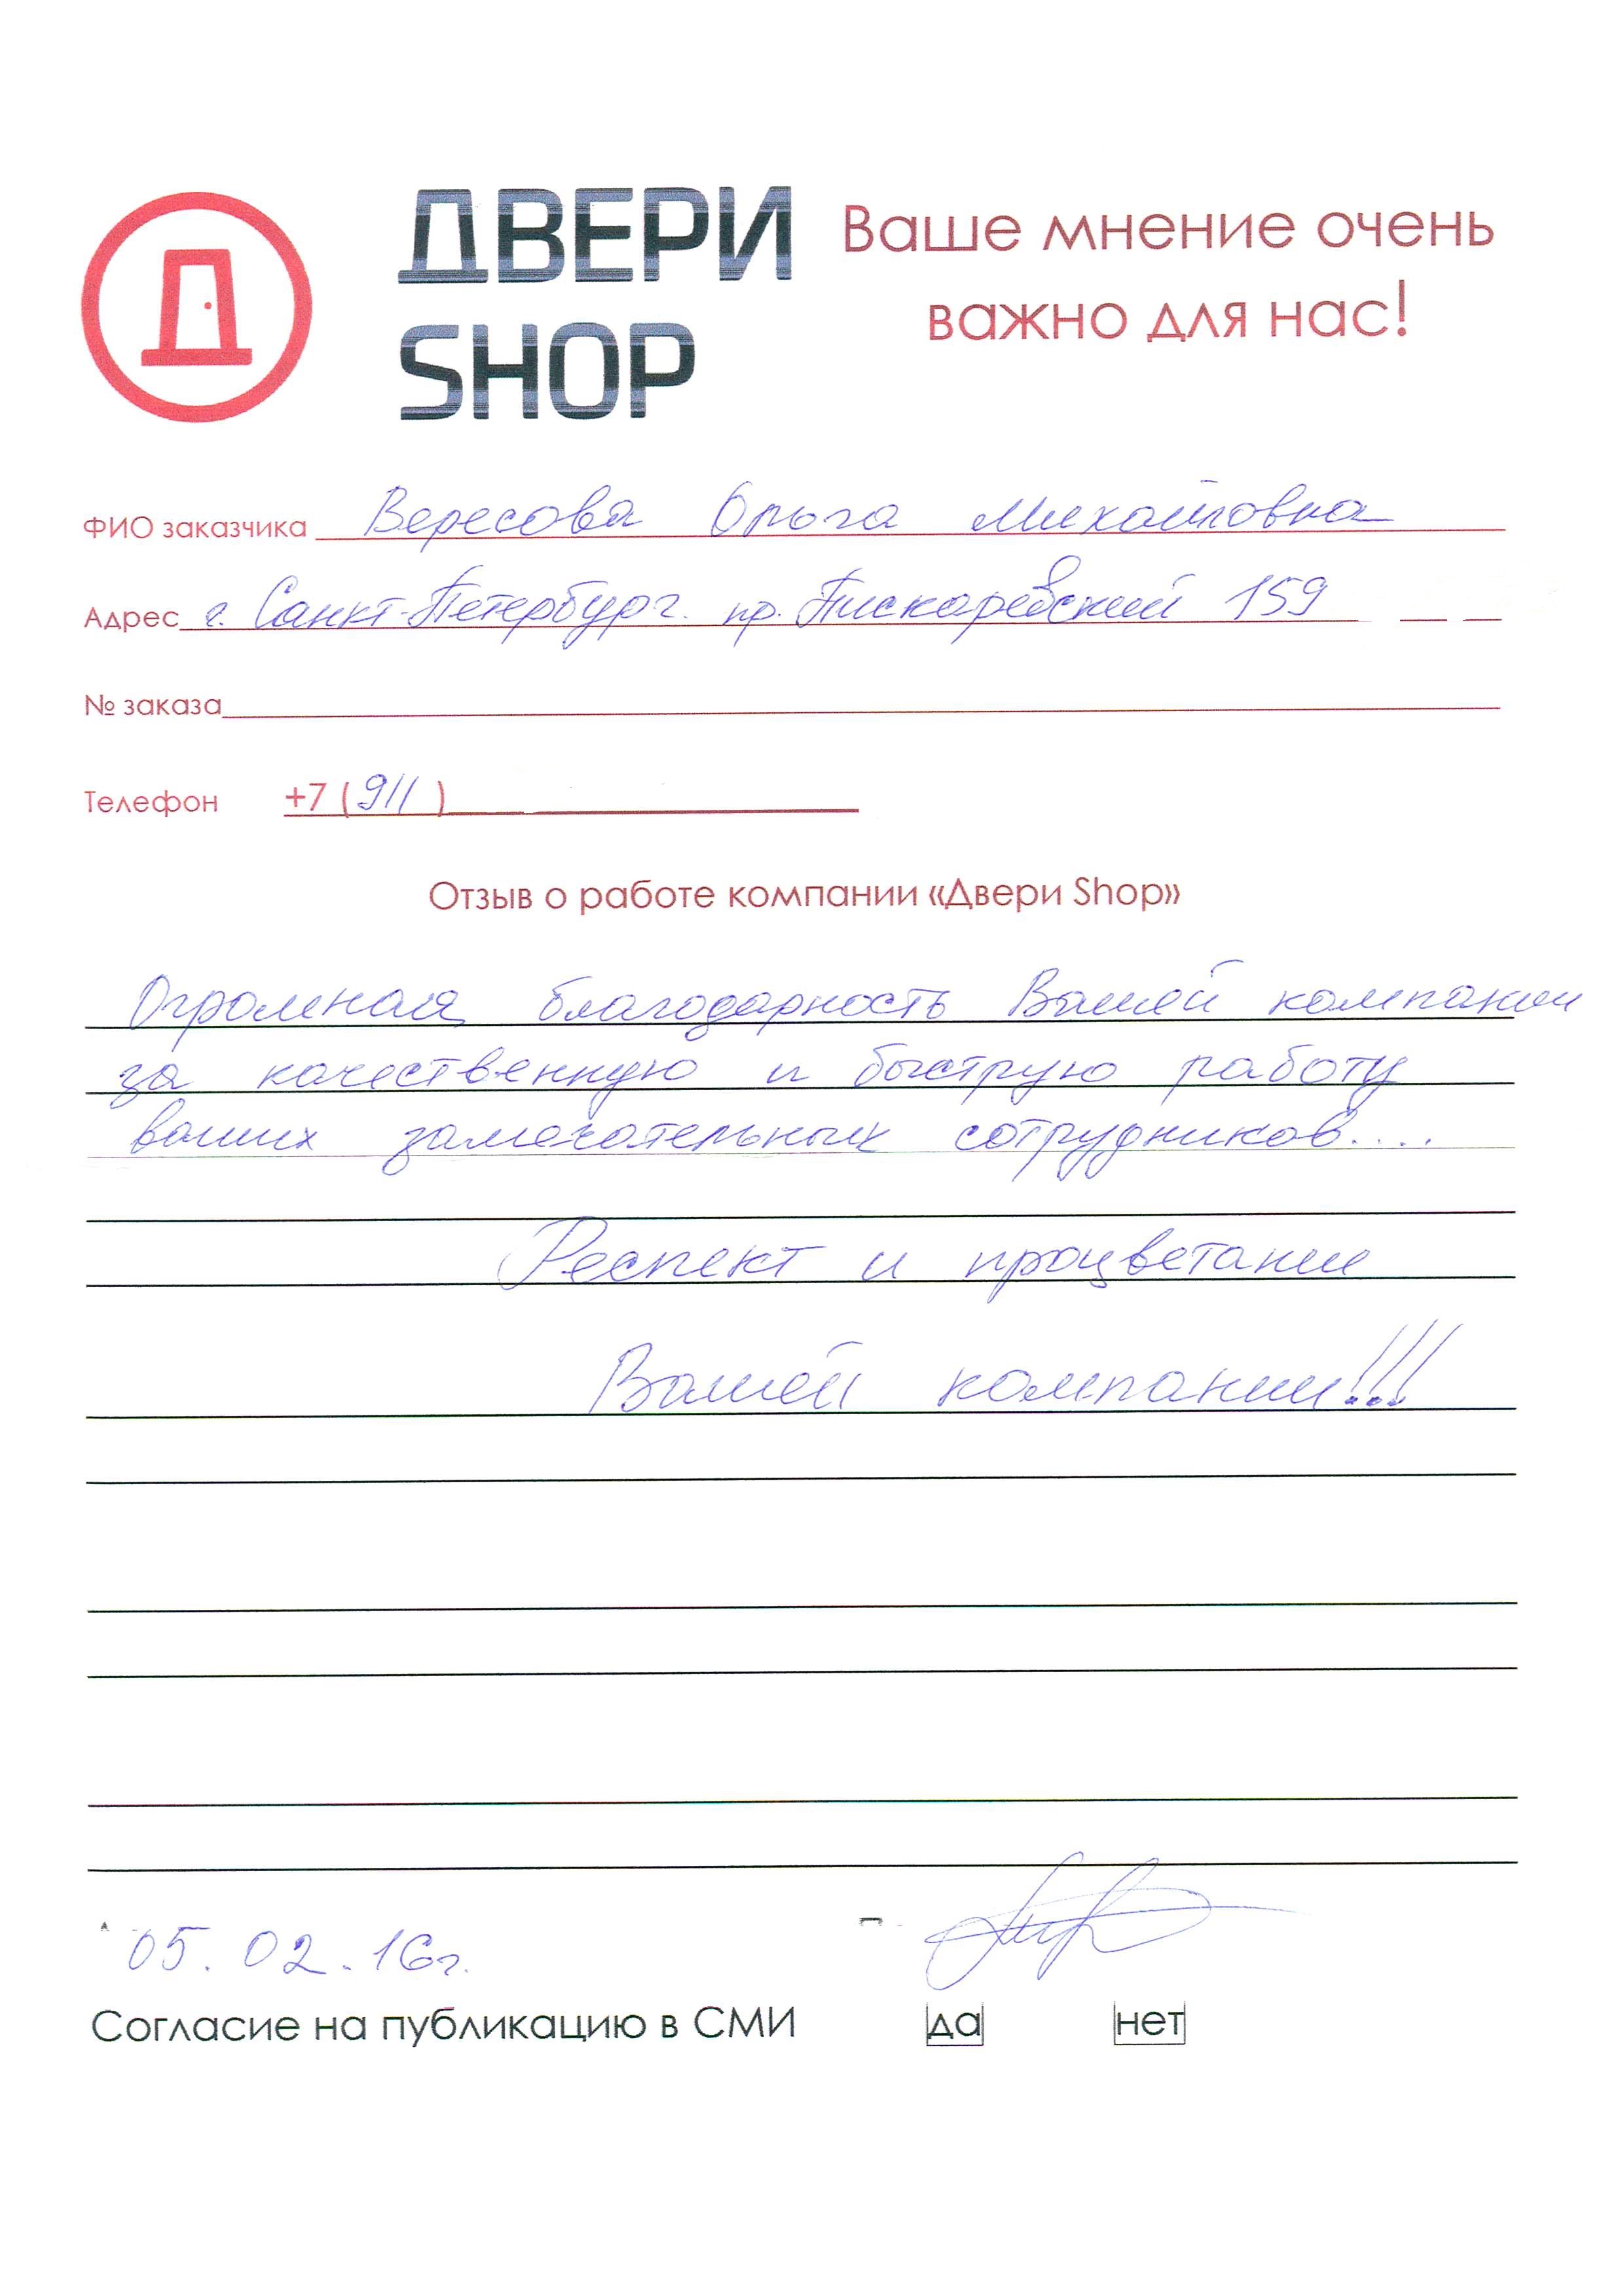 ДВЕРИ
SHOP
Ваше мнение очень
важно для нас!
ФИО заказчика Вересова Ольга Михайловна
Адрес г. Санкт-Петербург. пр. Пискаревский 159
№ заказа
Телефон +7 (911)
Отзыв о работе компании «Двери Shop»
Огромная благодарность Вашей компании
за качественную и быструю работу
ваших замечательных сотрудников....
Респект и процветание
Вашей компании!!!
05.02.16г.
Согласие на публикацию в СМИ да нет